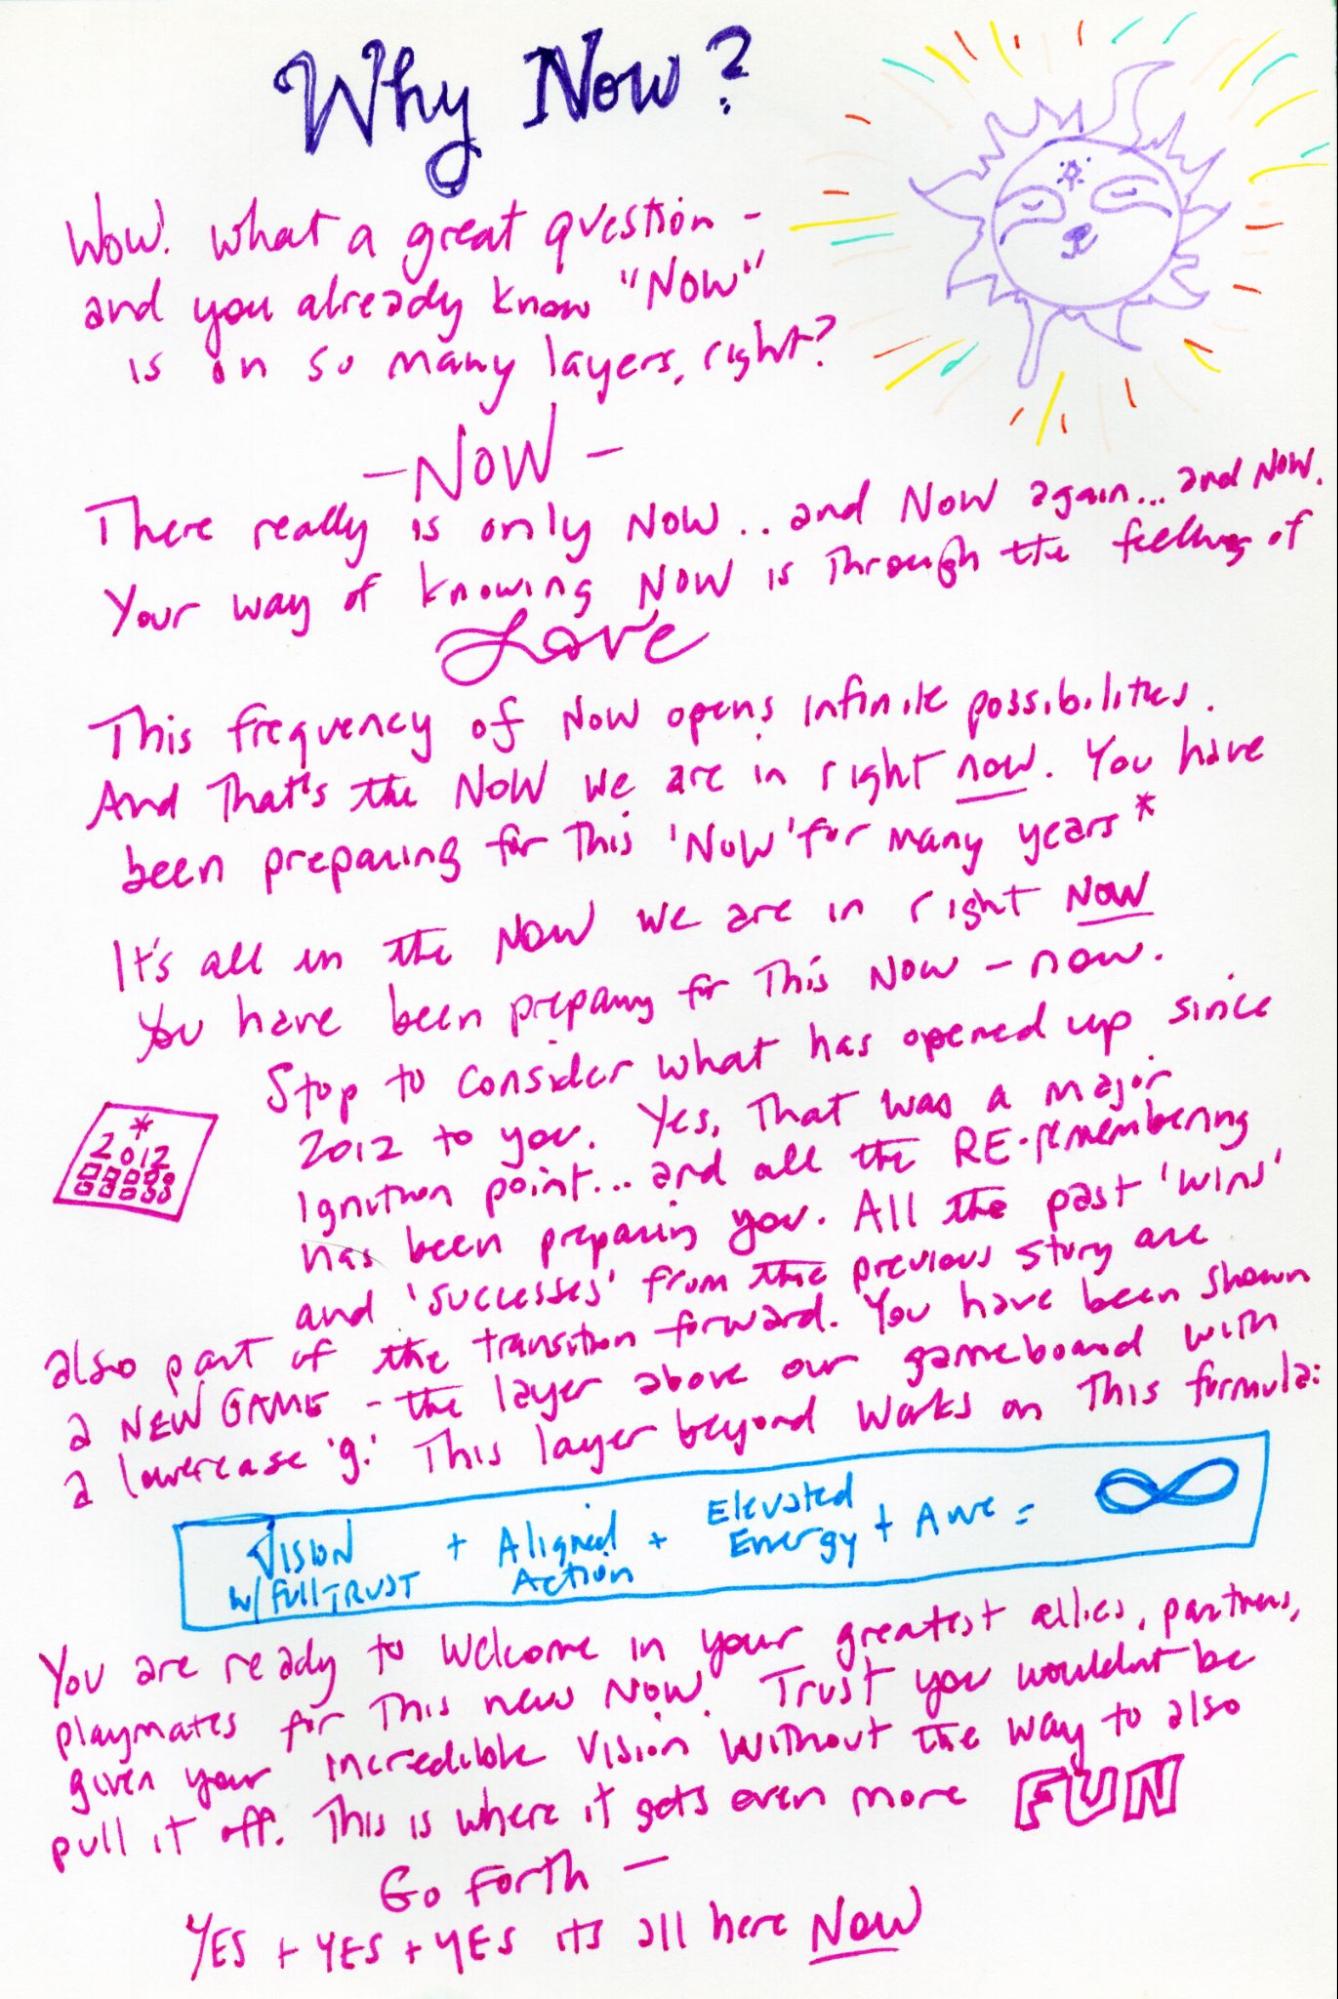 Why Now?
Wow! What a great question -
and you already know "NOW"
is on so many layers, right?
- NOW -
There really is only NOW.. and NOW again... and NOW.
Your way of knowing NOW is Through the feeling of
Love
This frequency of NOW opens infinite possibilities.
And That's the NOW we are in right now. You have
been preparing for This 'NOW' for many years*
It's all in the NOW we are in right NOW
You have been preparing for This NOW - now.
Stop to consider what has opened up since
2012 to you. Yes, That was a major
Ignition point... and all the RE-remembering
has been preparing you. All the past 'wins'
and 'successes' from the previous story are
also part of the transition forward. You have been shown
a NEW GAME - the layer above our gameboard with
a lowercase 'g.' This layer beyond works on This formula:
*
2012
Vision w/ Full TRUST + Aligned Action + Elevated Energy + Awe = ∞
You are ready to welcome in your greatest allies, partners,
playmates for This new NOW. Trust you wouldnt be
given your incredible Vision without the way to also
pull it off. This is where it gets even more FUN
Go Forth —
YES + YES + YES its all here NOW